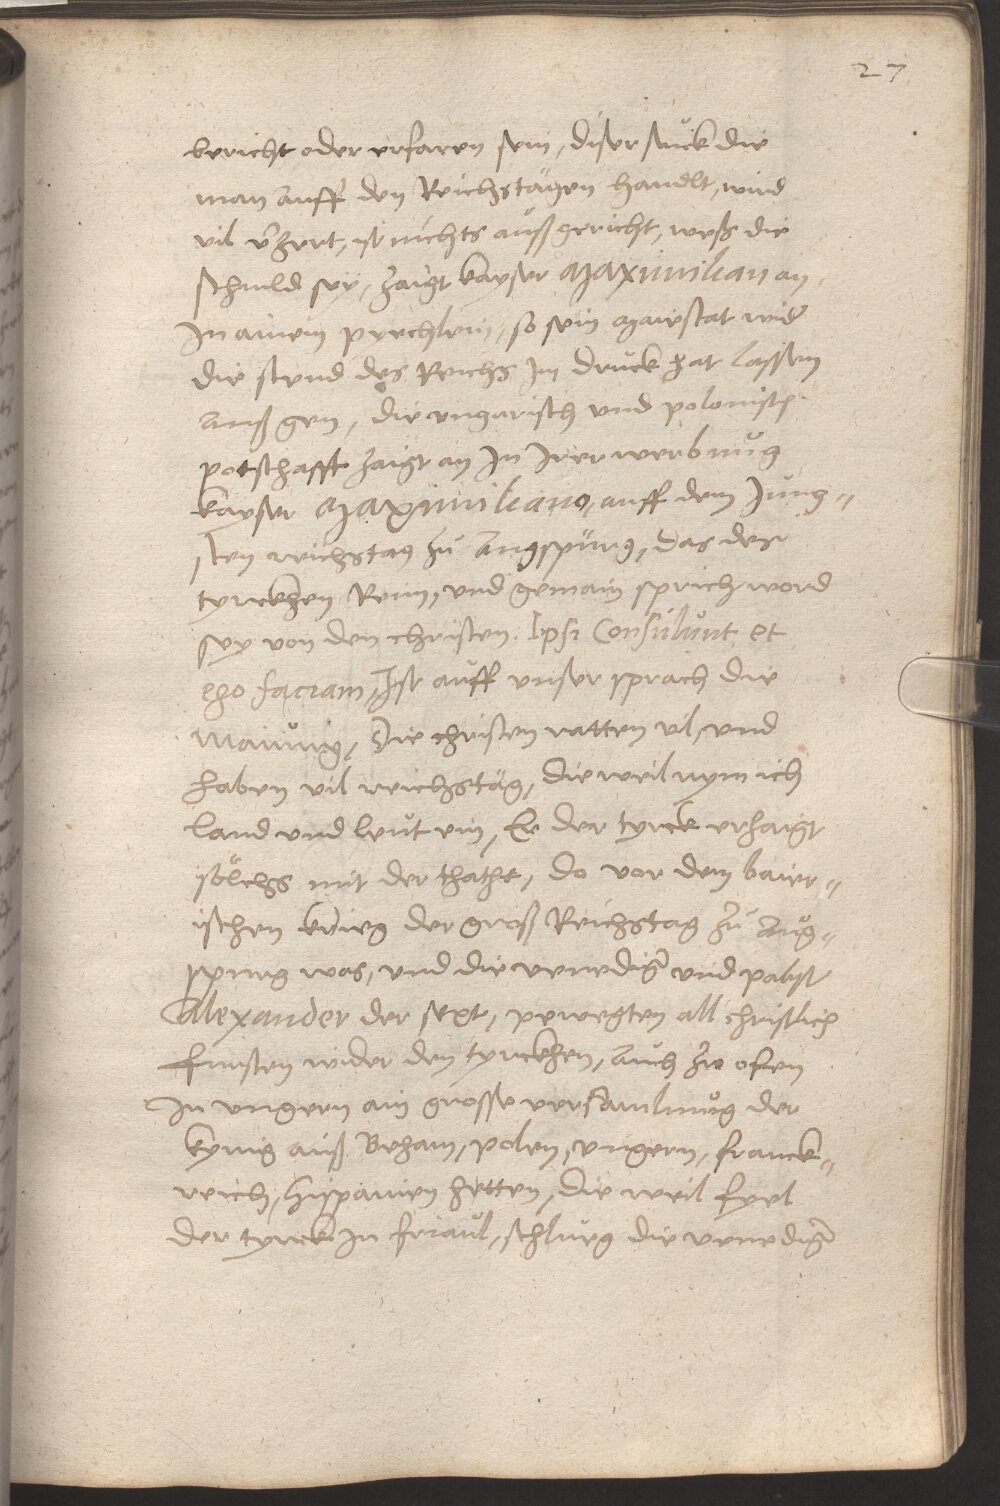 27
bericht oder erfaren sein, diser stuck die
man auff den Reichstägen handlt, wird
vil v̄zert, ist nichts außgericht, weß die
schuld sey, zaigt kayser Maximilian an,
In ainem puechlein, so sein Maiestat wid̄
die stend des Reichs Im druck hat lassen
auß gen, die ungarisch und polonisch
potschafft zaigt an In Irer werbung
kayser Maximiliano, auff dem Jung-
sten reichstag zu Augspurg, das der
tyrckhen Reim, und gemain sprichword
sey von den christen. Ipsi Consulunt et
ego faciam, Ist auff unser sprach die
mainung, Die christen ratten vil, und
haben vil reichstäg, die weil nym ich
land und leut ein, Er der tyrck erzaigt
sölchs mit der thathe, do vor dem baier-
ischen krieg der groß Reichstag zu Aug-
spurg was, und die venediḡ und pabst
Alexander der sext, pewegten all christlich
fursten wider den tyrckhen, auch zu ofen
In ungern ain grosse versamlung der
kynig auß Beham, polen, ungern, franck-
reich, hispanien hetten, die weil fyel
der tyrck In friaul, schlueg die venediḡ